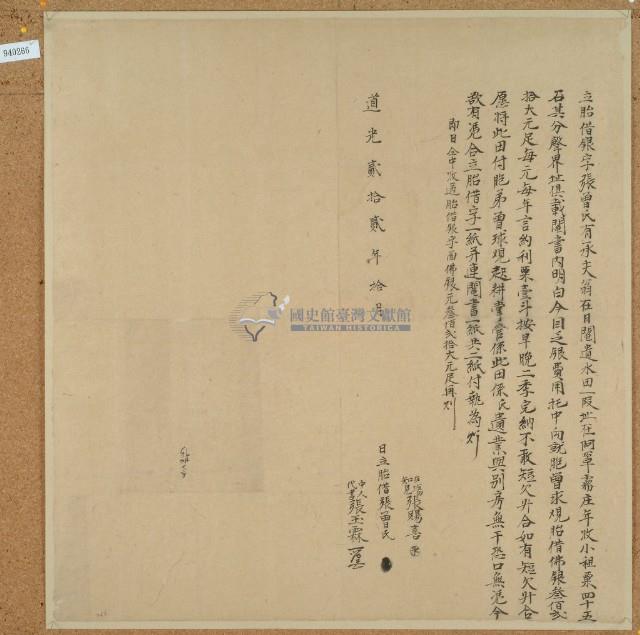 立胎借銀字張曾氏有承夫翁在日鬮遺水田一段址在阿罩霧庄年收小租粟四十五
石其分聲界址俱載鬮書內明白今因乏銀費用托中向就胞曾求觀胎借佛銀叁佰弍
拾大元足每元每年言約利粟壹斗按早晚二季完納不敢短欠升合如有短欠升合
愿將此田付胞弟曾球觀起耕掌管係此田係氏遺業與別房無干恐口無憑今
欲有憑合立胎借字一紙并連鬮書一紙共二紙付執為炤
即日仝中收過胎借銀字面佛銀元叁佰弍拾大元足再炤
道光貳拾貳年拾月
日立胎借張曾氏
知見張賜喜
中人
代筆張玉霖
國史館臺灣文獻館
TAIWAN HISTORICA
940266